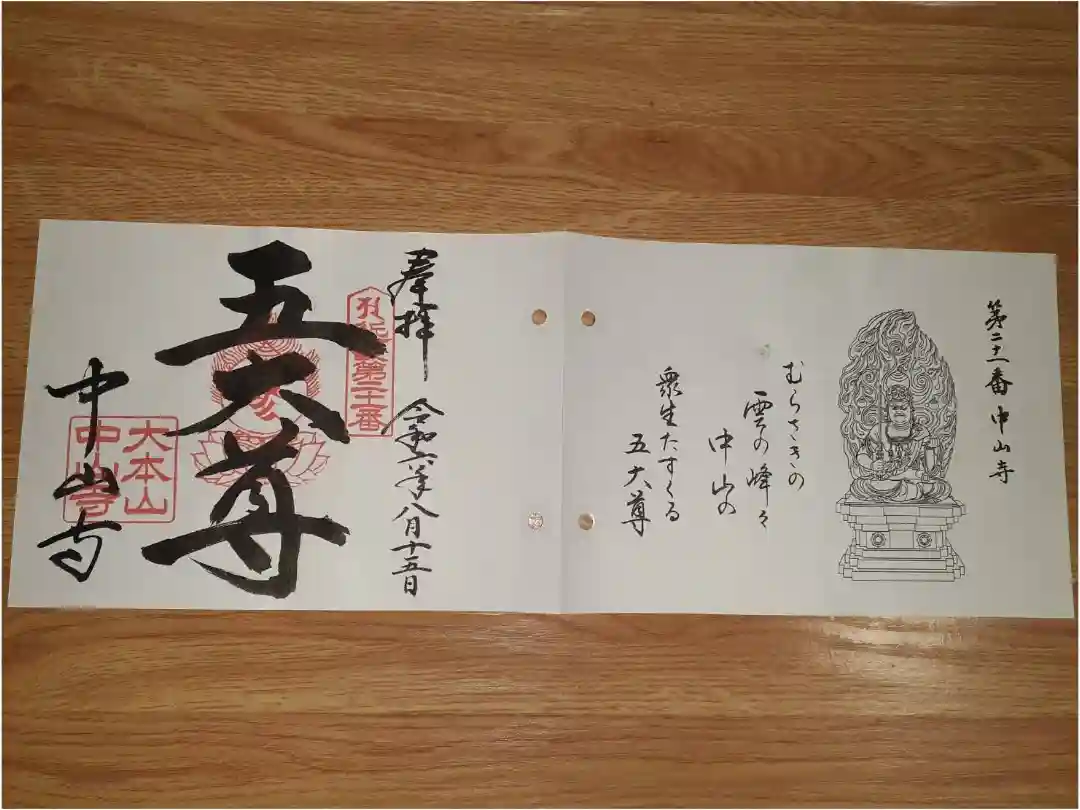 第二十一番 中山寺
むらさきの
雲の峰々
中山の
衆生たすくる
五大尊
奉拝 令和六年八月十五日
第二十一番
五大尊
中山寺
大本山
中山寺